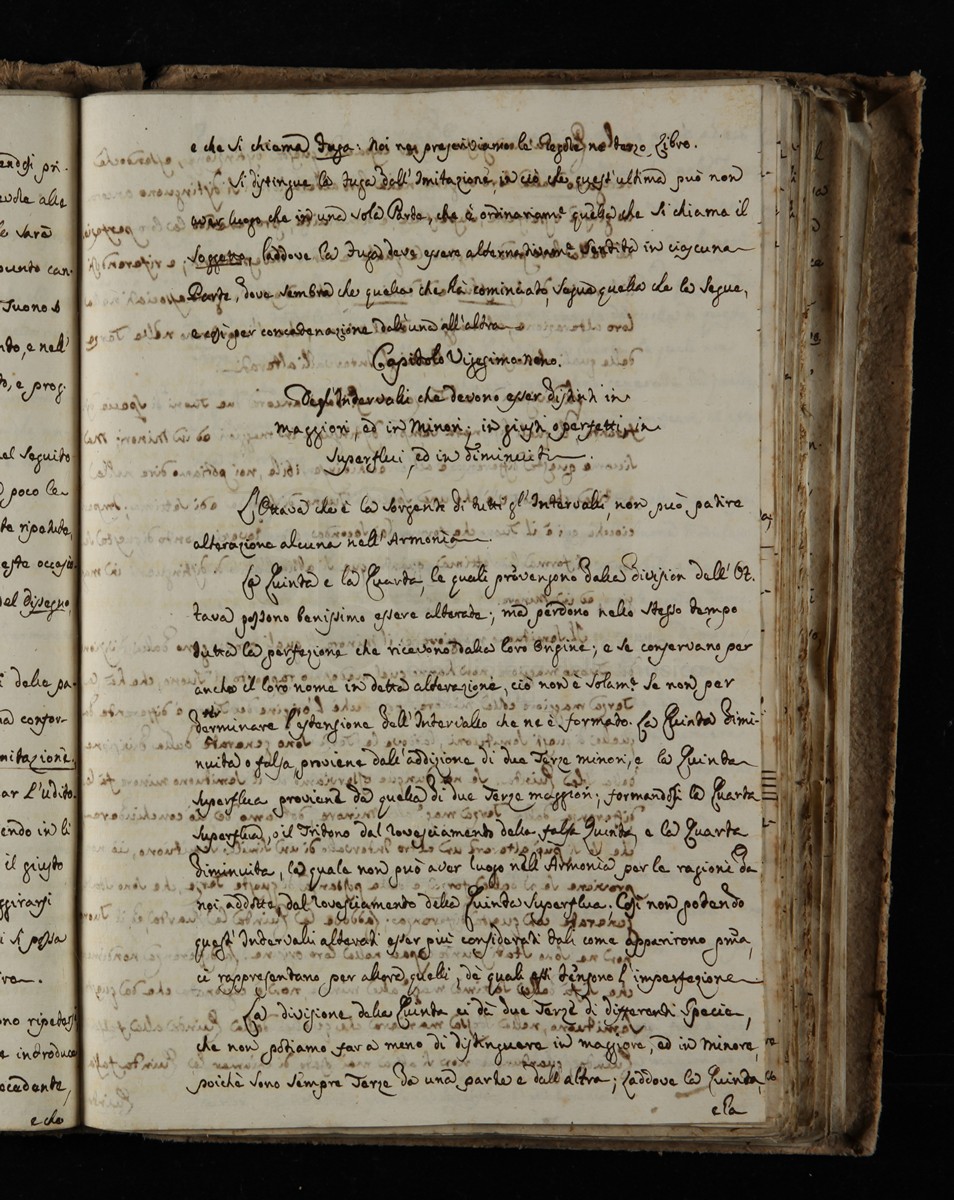 endosi pri-
evole alle
e sarà
punto can-
Tuono è
ndo, e nell'
o, e prog-
al seguito
poco le
te ripetute,
este occasi
del disegno,
i delle pa-
a confor-
mitazione.
ar l'udito.
endo in li
il giusto
ggirarsi
i si possa
re.
ono ripetersi
e introduce
ocedente,
e che
e che si chiama Fuga. Noi ne prescriviamo le Regole nel terzo Libro.
Si distingue la Fuga dall'Imitazione, in ciò che quest'ultima può non
aver luogo che in una sola Parte, che è ordinariam.e quella che si chiama il
Soggetto, laddove la Fuga deve essere alternativam.e sentita in ciascuna
Parte, dove sembra che quella che hà cominciato, segua quella che la segue,
e così per concatenazione dall'una all'altra.
Capitolo Vigesimo nono.
Degl'Intervalli che devono esser distinti in
Maggiori, ed in Minori; in giusti o perfetti, in
Superflui, ed in diminuiti.
L'Ottava che è la sorgente di tutti gl'Intervalli, non può patire
alterazione alcuna nell'Armonia.
La Quinta e la Quarta, le quali provengono dalla division dell'Ot-
tava possono benissimo essere alterate; mà perdono nello stesso tempo
tutta la perfezione che ricevono dalla loro Origine; e se conservano per
anche il loro nome in detta alterazione, ciò non è solam.e se non per
determinare l'estensione dell'Intervallo che ne è formato. La Quinta dimi-
nuita o falsa proviene dall'addizione di due Terze minori, e la Quinta
Superflua proviene da quella di due Terze maggiori; formandosi la Quarta
Superflua, o il Tritono dal rovesciamento della falsa Quinta, e la Quarta
diminuita, la quale non può aver luogo nell'Armonia per le ragioni da
noi addotte, dal rovesciamento della Quinta superflua. Così non potendo
quest'Intervalli alterati esser più considerati tali come apparirono pma,
ci rappresentano per allora quelli, de quali essi tengono l'imperfezione.
La divisione della Quinta ci dà due Terze di differenti specie,
che non potiamo far a meno di distinguere in maggiore, ed in Minore,
poichè sono sempre Terze da una parte e dall'altra; laddove la Quinta,
e la